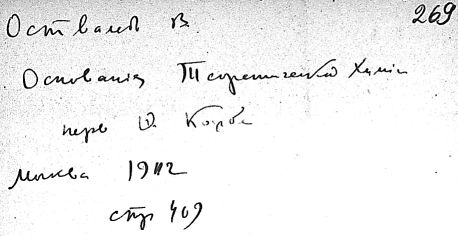 269
Оствальд В.
Основания Теоретической Химии
перев
Москва 1902
стр 409